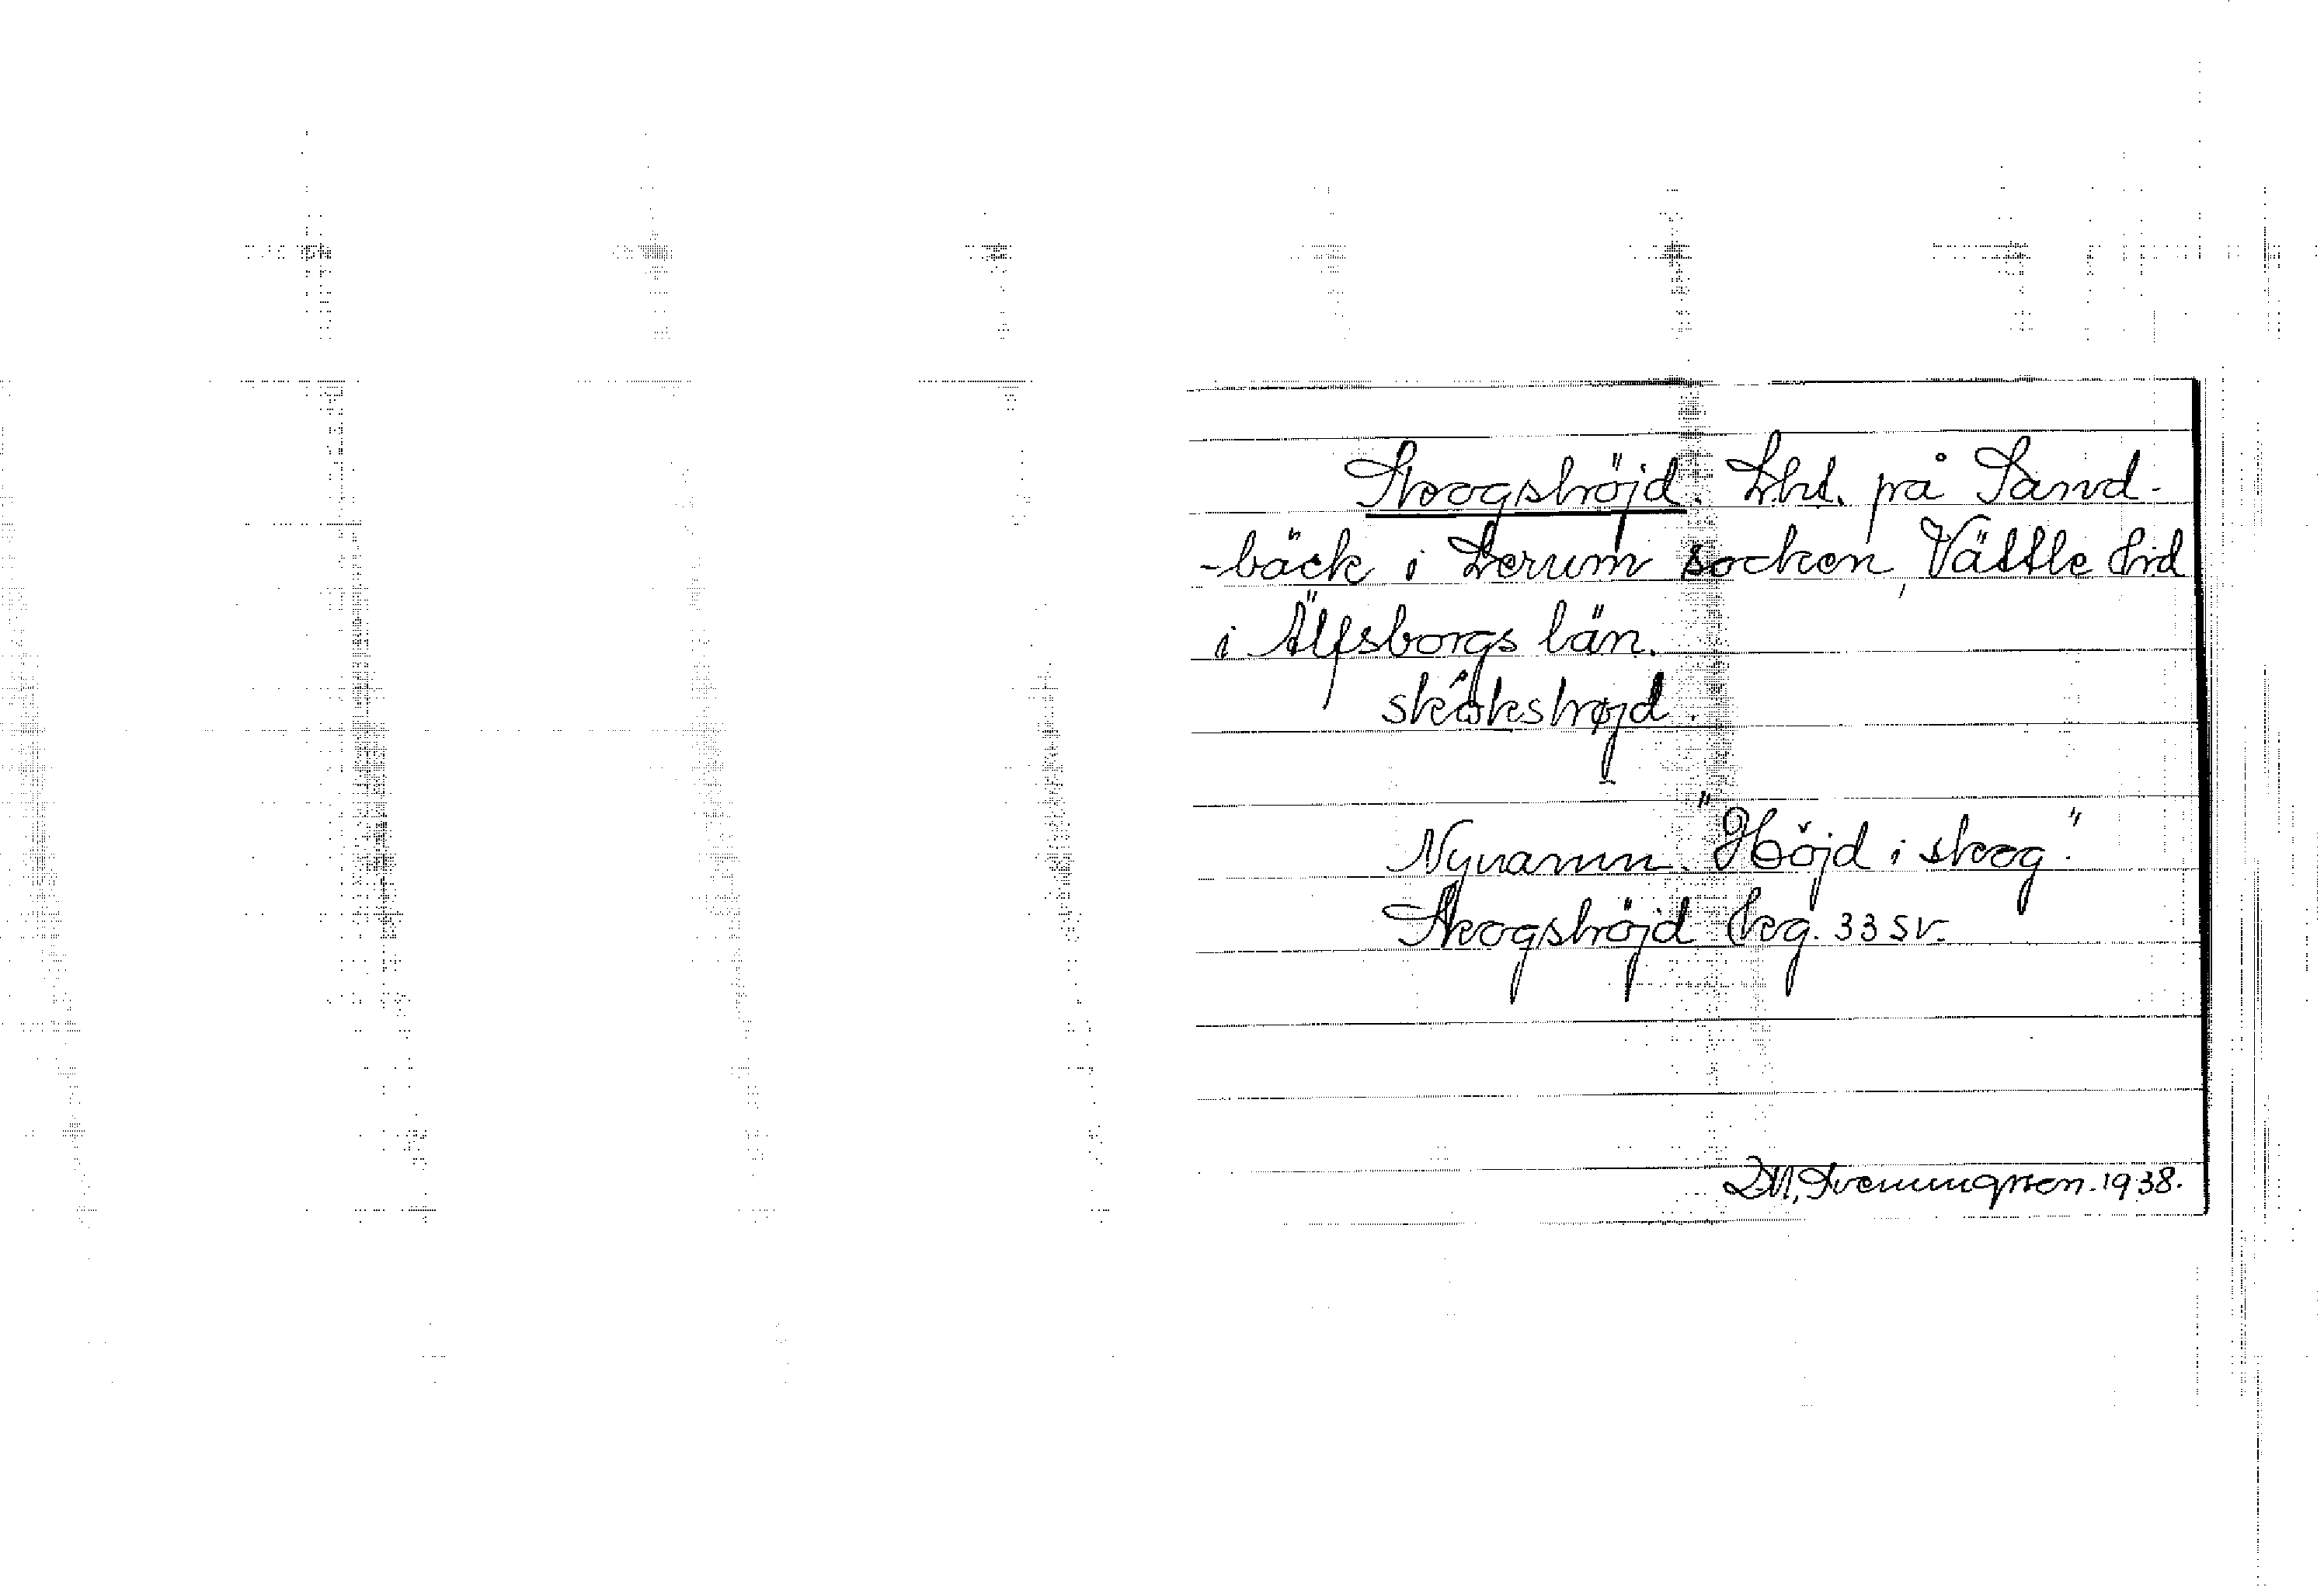 Skogshöjd. Lht. på Sand-
-bäck i Lerum socken, Vättle hd
i Älfsborgs län.
Nynamn. "Höjd i skog."
Skogshöjd beg. 33 SV.
D.M. Svenungsson. 1938.